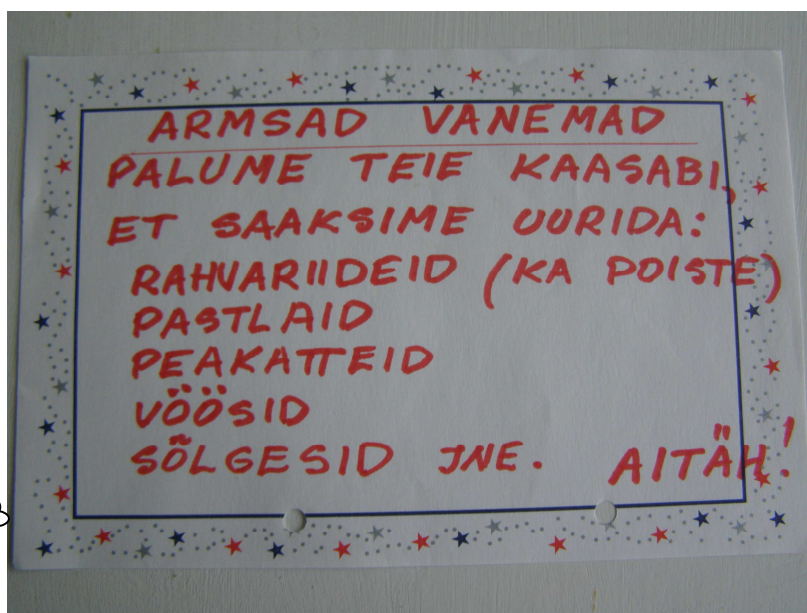 ARMSAD VANEMAD
PALUME TEIE KAASABI,
ET SAAKSIME UURIDA:
RAHVARIIDEID (KA POISTE)
PASTLAID
PEAKATTEID
VÖÖSID
SÕLGESID JNE. AITÄH!